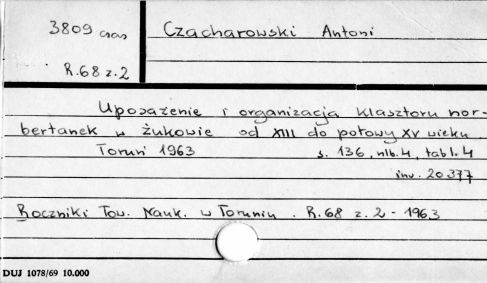 3809 czas
Czacharowski Antoni
R.68 z.2
Uposażenie i organizacja klasztoru nor-
bertanek w Żukowie od XIII do połowy XV wieku
Toruń 1963 s. 136, nlb. 4, tabl. 4
inw. 20377
Roczniki Tow. Nauk. w Toruniu. R.68 z. 2 - 1963
DUJ 1078/69 10.000